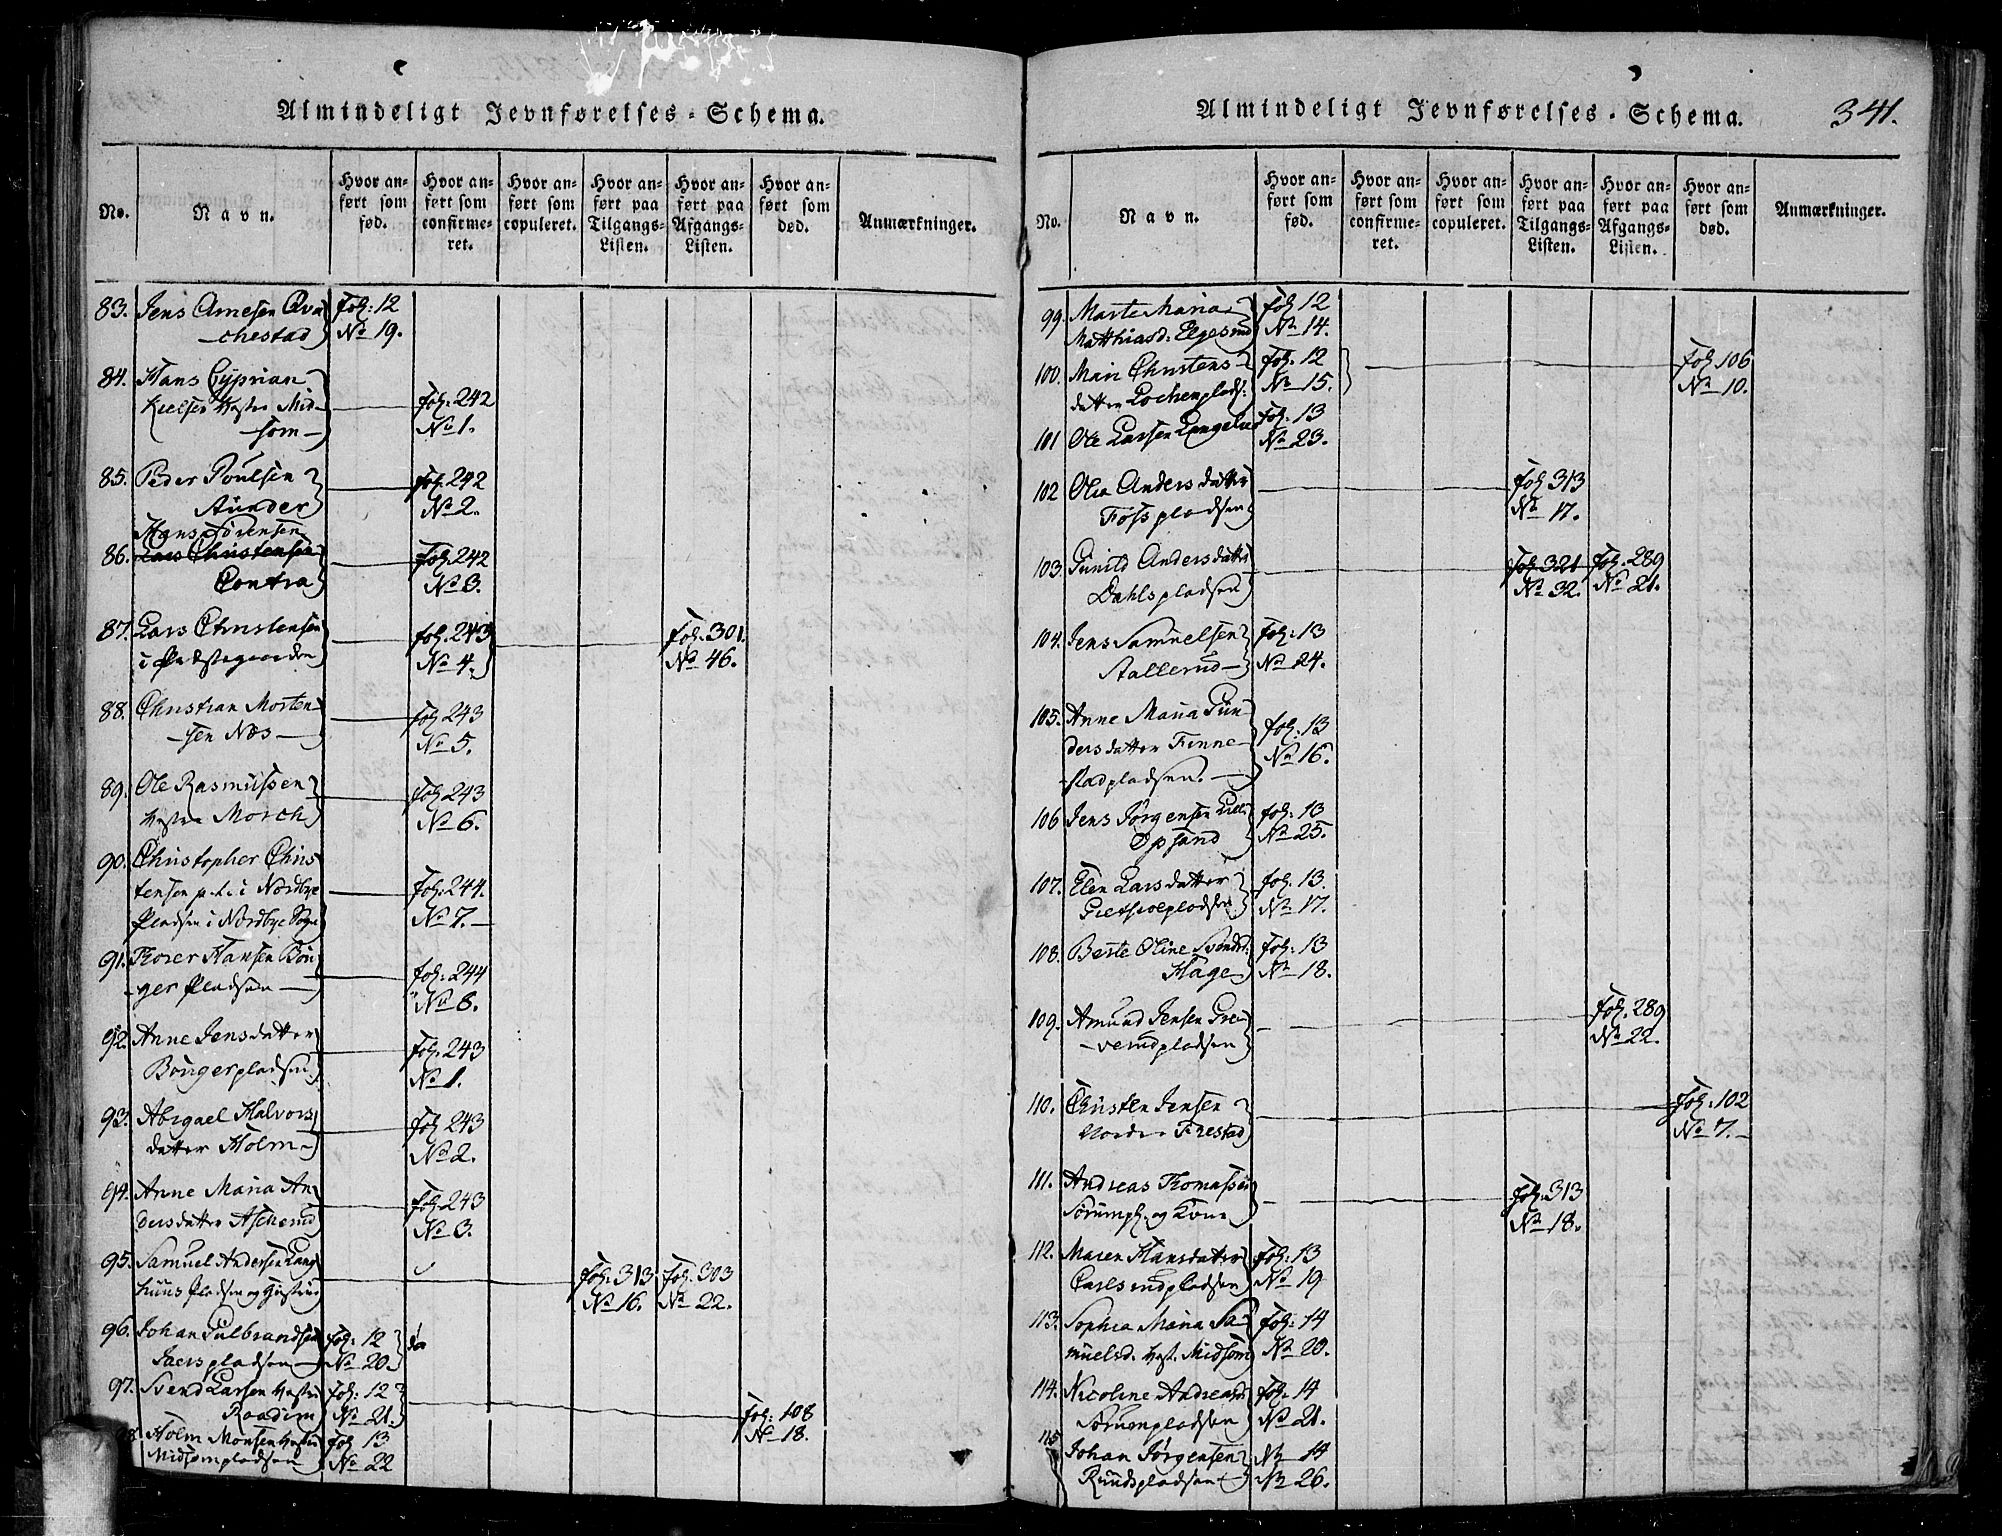 Almindeligt Jevnførelses-Schema.
No.
Navn.
Hvor anført som fød.
Hvor anført som confirmeret.
Hvor anført som copuleret.
Hvor anført paa Tilgangs-Listen.
Hvor anført paa Afgangs-Listen.
Hvor anført som død.
Anmærkninger.
83. Jens Arnesen Qva fol: 12
chestad No 19.
84. Hans Cyprian
Kielsen Vestre Mid fol: 242
som No 1.
85. Peder Poulsen fol. 242
Aunder No 2.
Hans Sørensen
86. Lars Christensen fol: 242
Contra No 3.
87. Lars Christensen fol. 243 fol. 301.
i Præstegaarden No 4. No 46.
88. Christian Morten fol. 243
sen Næs No 5.
89. Ole Rasmussen fol. 243
Vestre Morch No 6.
90. Christopher Chris
tensen p.t. i Nordbye fol. 244.
Pladsen i Nordbye Sogn No 7.
91. Thorer Hansen Bøn fol. 244
ger Pladsen No 8.
92. Anne Jensdatter fol. 243
Bøngerpladsen No 1.
93. Abigael Halvors fol. 243
datter Holm No 2.
94. Anne Maria An fol. 243
dersdatter Ascherud No 3.
95. Samuel Andersen Lang fol: 313 fol. 303
huus Pladsen og Hustrue No 16. No 22.
96. Johan Gulbrandsen fol: 12
Jaerspladsen No 20.
97. Svend Larsen Vestre fol: 12 fol: 108
Raadim No 21. No 18.
98. Holm Monsen Vestre fol 13
Midsompladsen No 22
Almindeligt Jevnførelses-Schema.
341.
No.
Navn.
Hvor anført som fød.
Hvor anført som confirmeret.
Hvor anført som copuleret.
Hvor anført paa Tilgangs-Listen.
Hvor anført paa Afgangs-Listen.
Hvor anført som død.
Anmærkninger.
99. Marte Maria fol 12
Matthiasd. Elgesrud No 14.
100. Mari Christens fol. 12 fol. 106
datter Lochenplads: No 15. No 10.
101 Ole Larsen Langelie fol. 13
No 23.
102 Olea Andersdatter fol 313
Fosspladsen No 17.
103. Gunild Andersdatter fol. 321 fol. 289
Dahlspladsen No 32. No 21.
104. Jens Samuelsen fol. 13
Aallerud No 24.
105. Anne Maria Gun fol. 13
dersdatter Finne No 16.
stadpladsen.
106 Jens Jørgensen Lille fol. 13
Opsand No 25.
107. Elen Larsdatter fol. 13.
pladsen No 17.
108. Berte Oline Svends. fol. 13
Hage No 18.
109. Amund Jensen Gre fol. 289
verudpladsen No 22.
110. Christen Jensen fol: 102
Nordre Finestad No 7.
111. Andreas Thomassen fol. 313
Sørumpl. og Kone No 18.
112. Maren Hansdatter fol: 13
Carlsrudpladsen No 19
113. Sophia Maria Sa fol: 14
muelsd. Vest. Midsom No 20.
114. Nicoline Andreasd. fol. 14
Sørumpladsen No 21.
115 Johan Jørgensen No 14
Rundspladsen No 26.